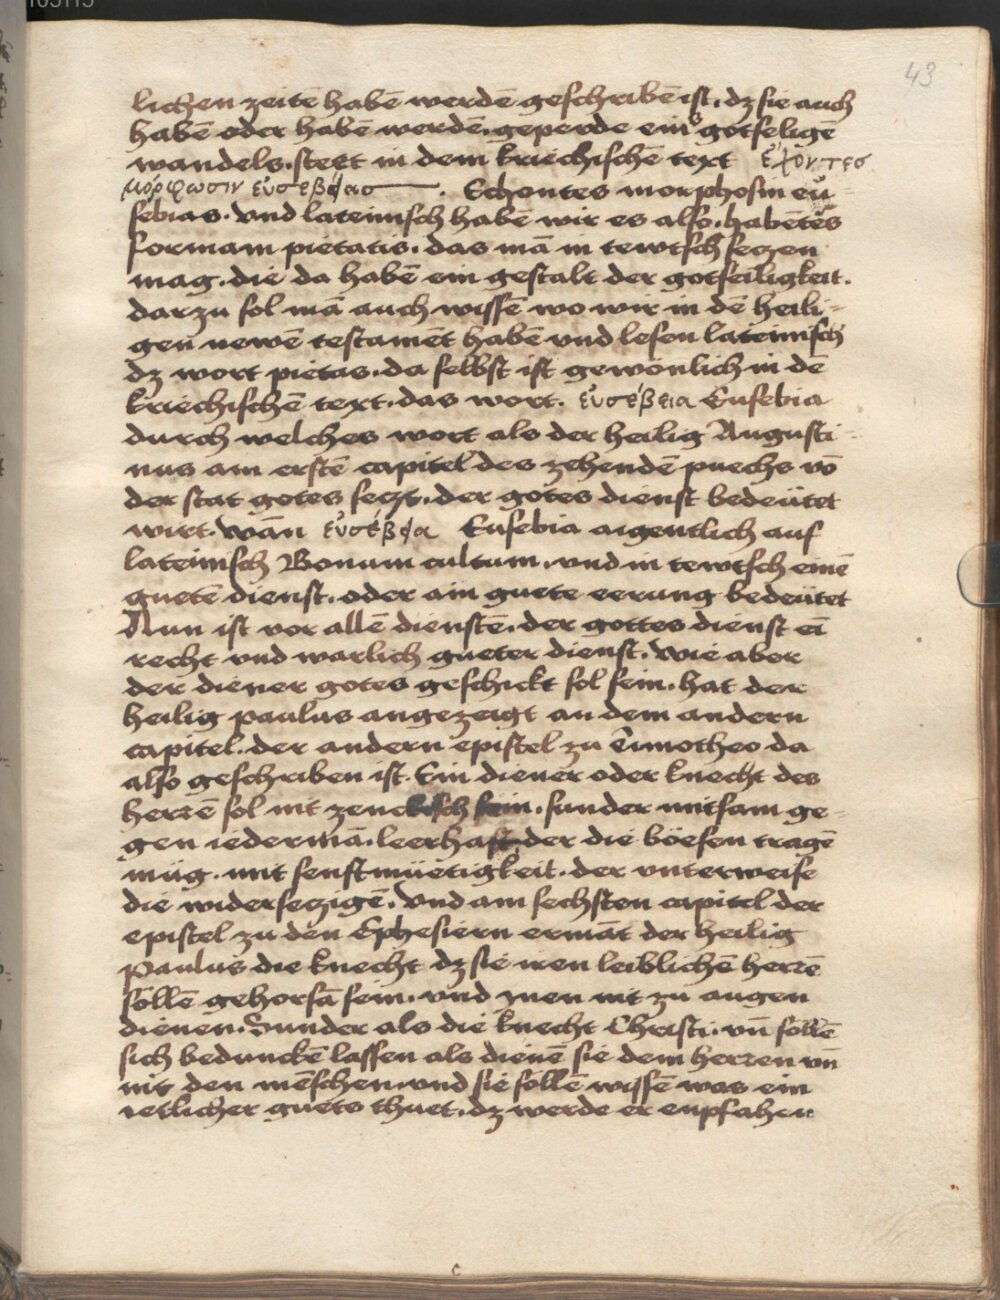 43
lichen zeitē habē werdē geschribē ist. dz sie auch
habē oder habē werdē. geperde eins gotseligē
wandels. steet in dem kriechischē text ἔχοντες
μόρφωσιν εὐσεβείας. Echontes morphosin eu-
sebias. vnd lateinisch habē wir es also. habētes
formam pietatis. das mā in tewtsch seczen
mag. die da habē ein gestalt der gotseiligkeit.
darzu sol mā auch wissē wo wir in dē heili-
gen newē testamēt habē vnd lesen lateinisch
dz wort pietas. da selbst ist gewonlich in dē
kriechischē text. das wort. εὐσέβεια Eusebia
durch welches wort als der heilig Augusti-
nus am erstē capitel des zehendē puechs vō
der stat gotes seczt. der gotes dienst bedeütet
wirt. wān εὐσέβεια Eusebia aigentlich auf
lateinisch Bonum cultum. vnd in tewtsch einē
guetē dienst. oder ain guete eerung bedeütet
Nun ist vor allē dienstē. der gottes dienst eī
recht vnd warlich gueter dienst. wie aber
der diener gotes geschickt sol sein. hat der
heilig paulus angezeigt an dem andern
capitel. der andern epistel zu Timotheo da
also geschriben ist. Ein diener oder knecht des
herrē sol nit zenckisch sein. sunder mitsam ge-
gen iedermā. leerhaft, der die böesen tragē
müg. mit senftmüetigkeit. der vnterweise
die widerseczigē. Vnd am sechsten capitel der
epistel zu den Ephesiern ermāt der heilig
Paulus die knecht dz sie iren leiblichē herrē
sollē gehorsā sein. vnd ynen nit zu augen
dienen. Sunder als die knecht Christi. vn̄ sollē
sich beduncke͂ lassen als dienē sie dem herren vn̄
nit den mēschen. vnd sie sollē wissē was ein
ietlicher guets thuet. dz werde er enpfahen